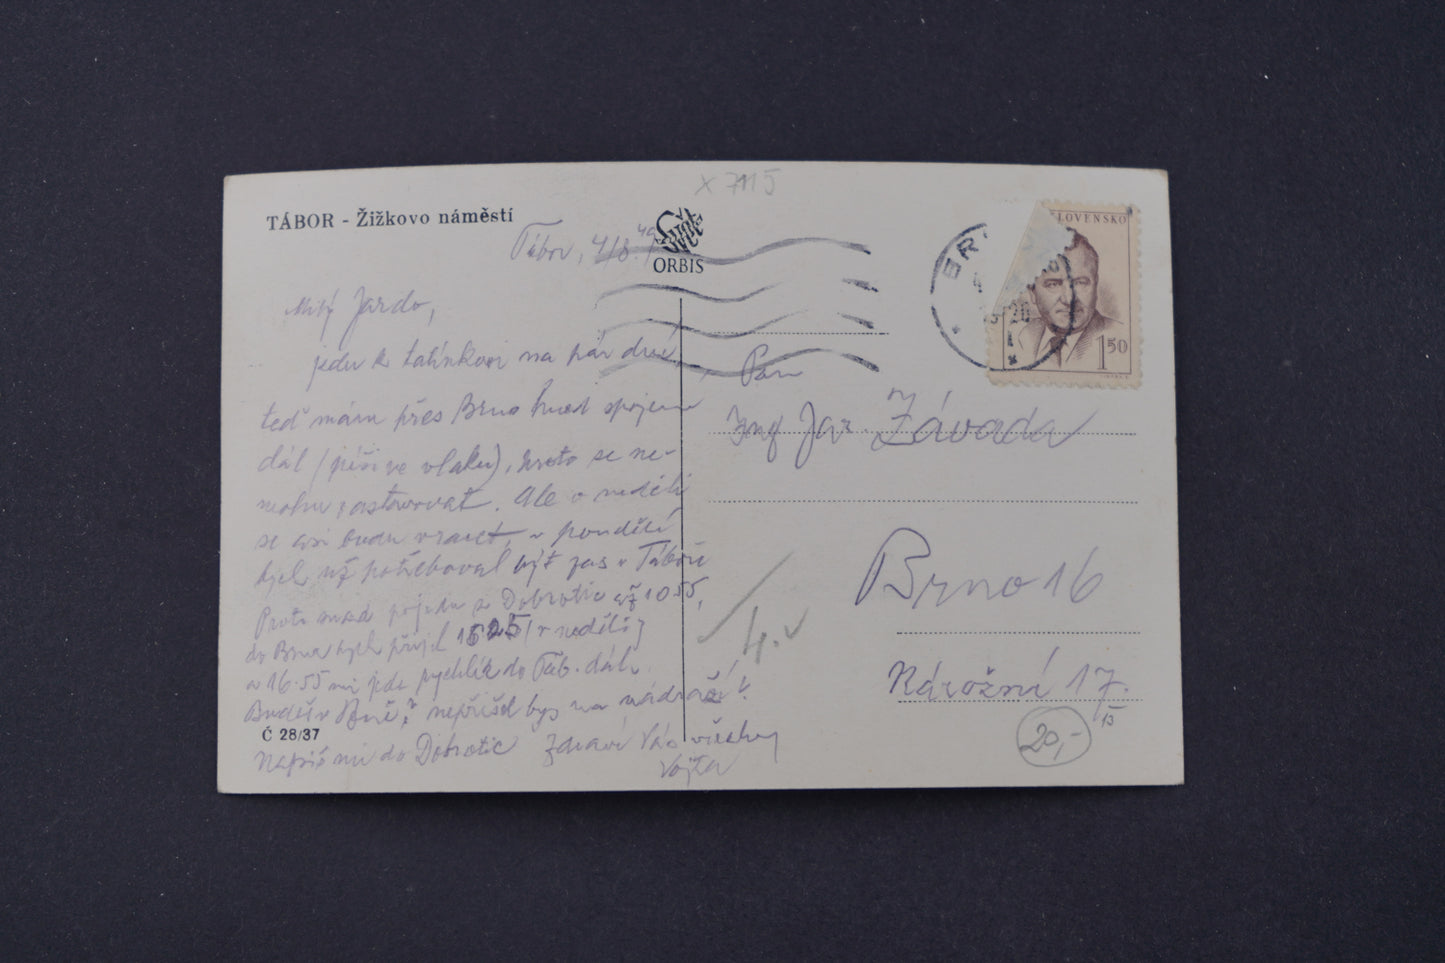 x 7115
TÁBOR - Žižkovo náměstí
Tábor, 4/8. 49
ORBIS
BR
4
20
SLOVENSKO
1 50
Milý Jardo,
jedu k tatínkovi na pár dní,
teď mám přes Brno hned spojení
dál (píši ve vlaku), proto se ne-
mohu zastavovat. Ale v neděli
se asi budu vracet, v pondělí
bych už potřeboval být zas v Táboře
Proto snad pojedu z Dobrotic až 10 55,
do Brna bych přijel 1525 (v neděli)
a 16.55 mi jede rychlík do Táb. dál.
Budeš v Brně? nepřišel bys na nádraží?
Č 28/37
Napiš mi do Dobrotic Zdraví Vás všechny
Vojta
Pan
Ing Jar. Závada
Brno 16
Nárožní 17.
13
4.
20,-